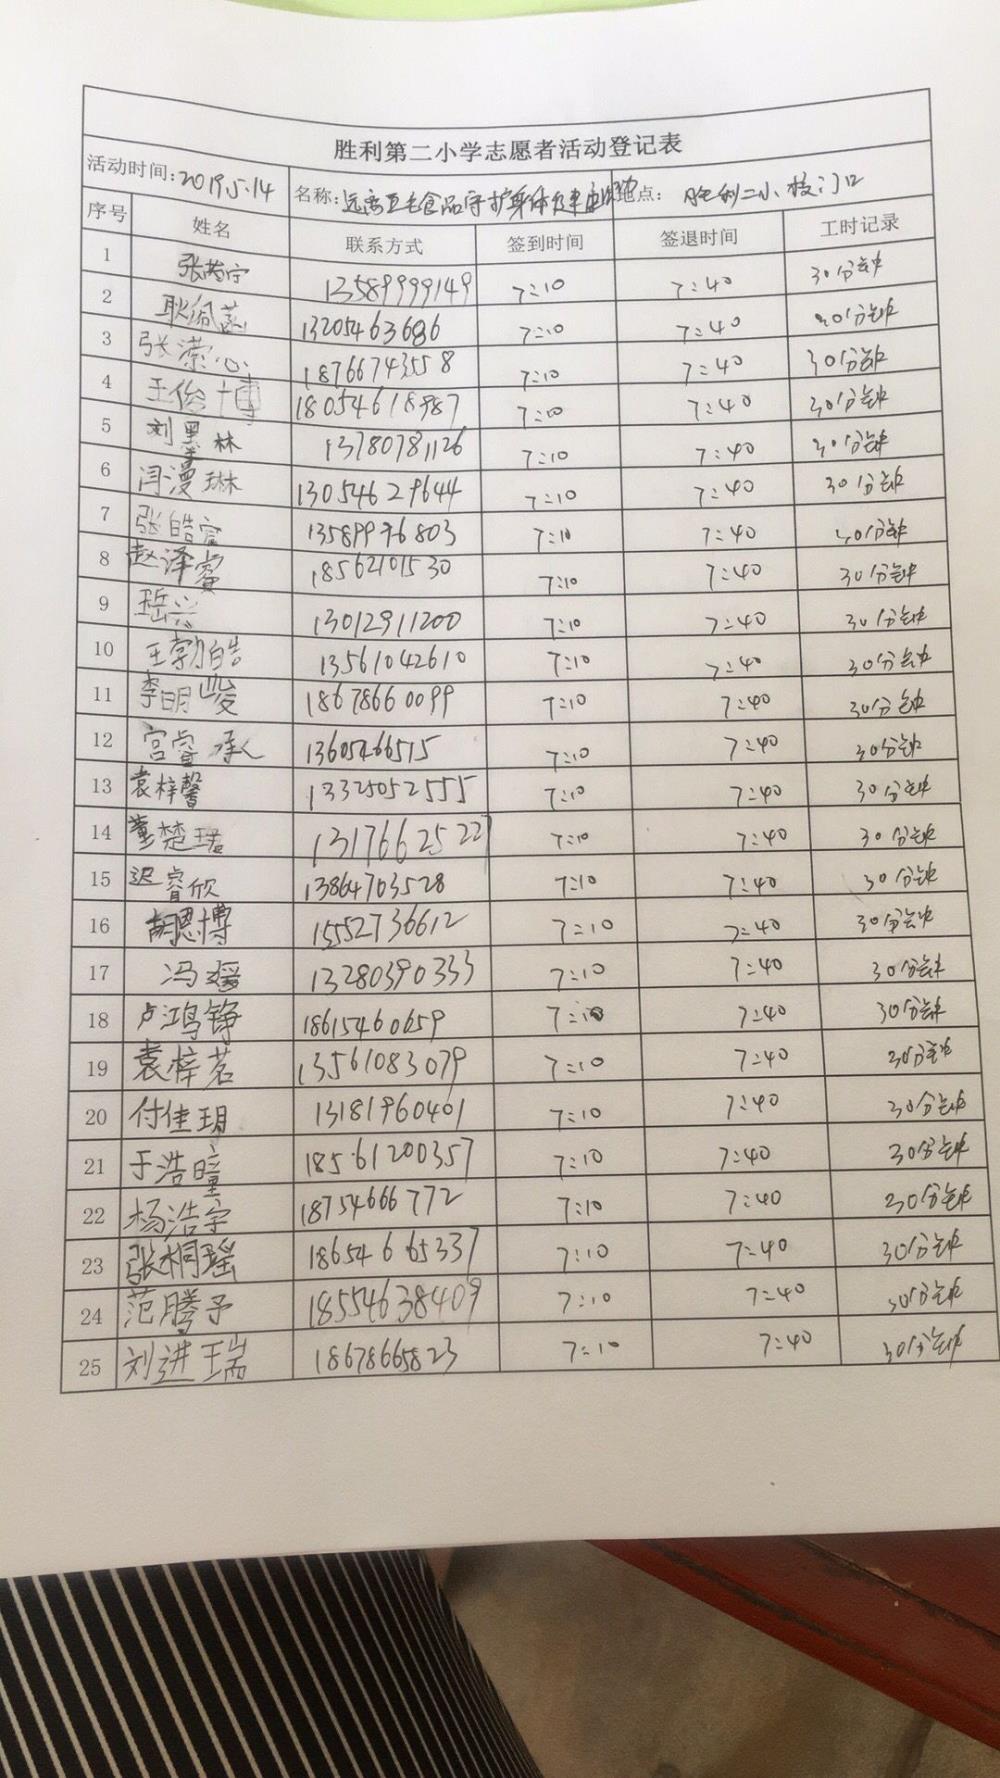 胜利第二小学志愿者活动登记表
活动时间:2019.5.14 名称:远离五毛食品守护身体健康 地点: 胜利二小校门口
序号 姓名 联系方式 签到时间 签退时间 工时记录
1 张芮宁 13589999149 7:10 7:40 30分钟
2 耿佩菡 13205463686 7:10 7:40 30分钟
3 张潆心 18766743558 7:10 7:40 30分钟
4 王俊博 18054618987 7:10 7:40 30分钟
5 刘墨林 13780781126 7:10 7:40 30分钟
6 闫漫琳 13054629644 7:10 7:40 30分钟
7 张皓宸 13589976803 7:10 7:40 30分钟
8 赵泽睿 18562101530 7:10 7:40 30分钟
9 13012911200 7:10 7:40 30分钟
10 王勃皓 13561042610 7:10 7:40 30分钟
11 李明峻 18678660099 7:10 7:40 30分钟
12 宫睿承 13605466515 7:10 7:40 30分钟
13 袁梓馨 13325052555 7:10 7:40 30分钟
14 董楚珺 13176625227 7:10 7:40 30分钟
15 迟睿欣 13864703528 7:10 7:40 30分钟
16 胡恩博 15552736612 7:10 7:40 30分钟
17 冯媛 13280390333 7:10 7:40 30分钟
18 卢鸿铮 18615460659 7:10 7:40 30分钟
19 袁梓茗 13561083079 7:10 7:40 30分钟
20 付佳玥 13181960401 7:10 7:40 30分钟
21 于浩瞳 18561200357 7:10 7:40 30分钟
22 杨浩宇 18754666772 7:10 7:40 30分钟
23 张桐瑶 18654665337 7:10 7:40 30分钟
24 范腾予 18554638409 7:10 7:40 30分钟
25 刘进瑞 18678665823 7:10 7:40 30分钟